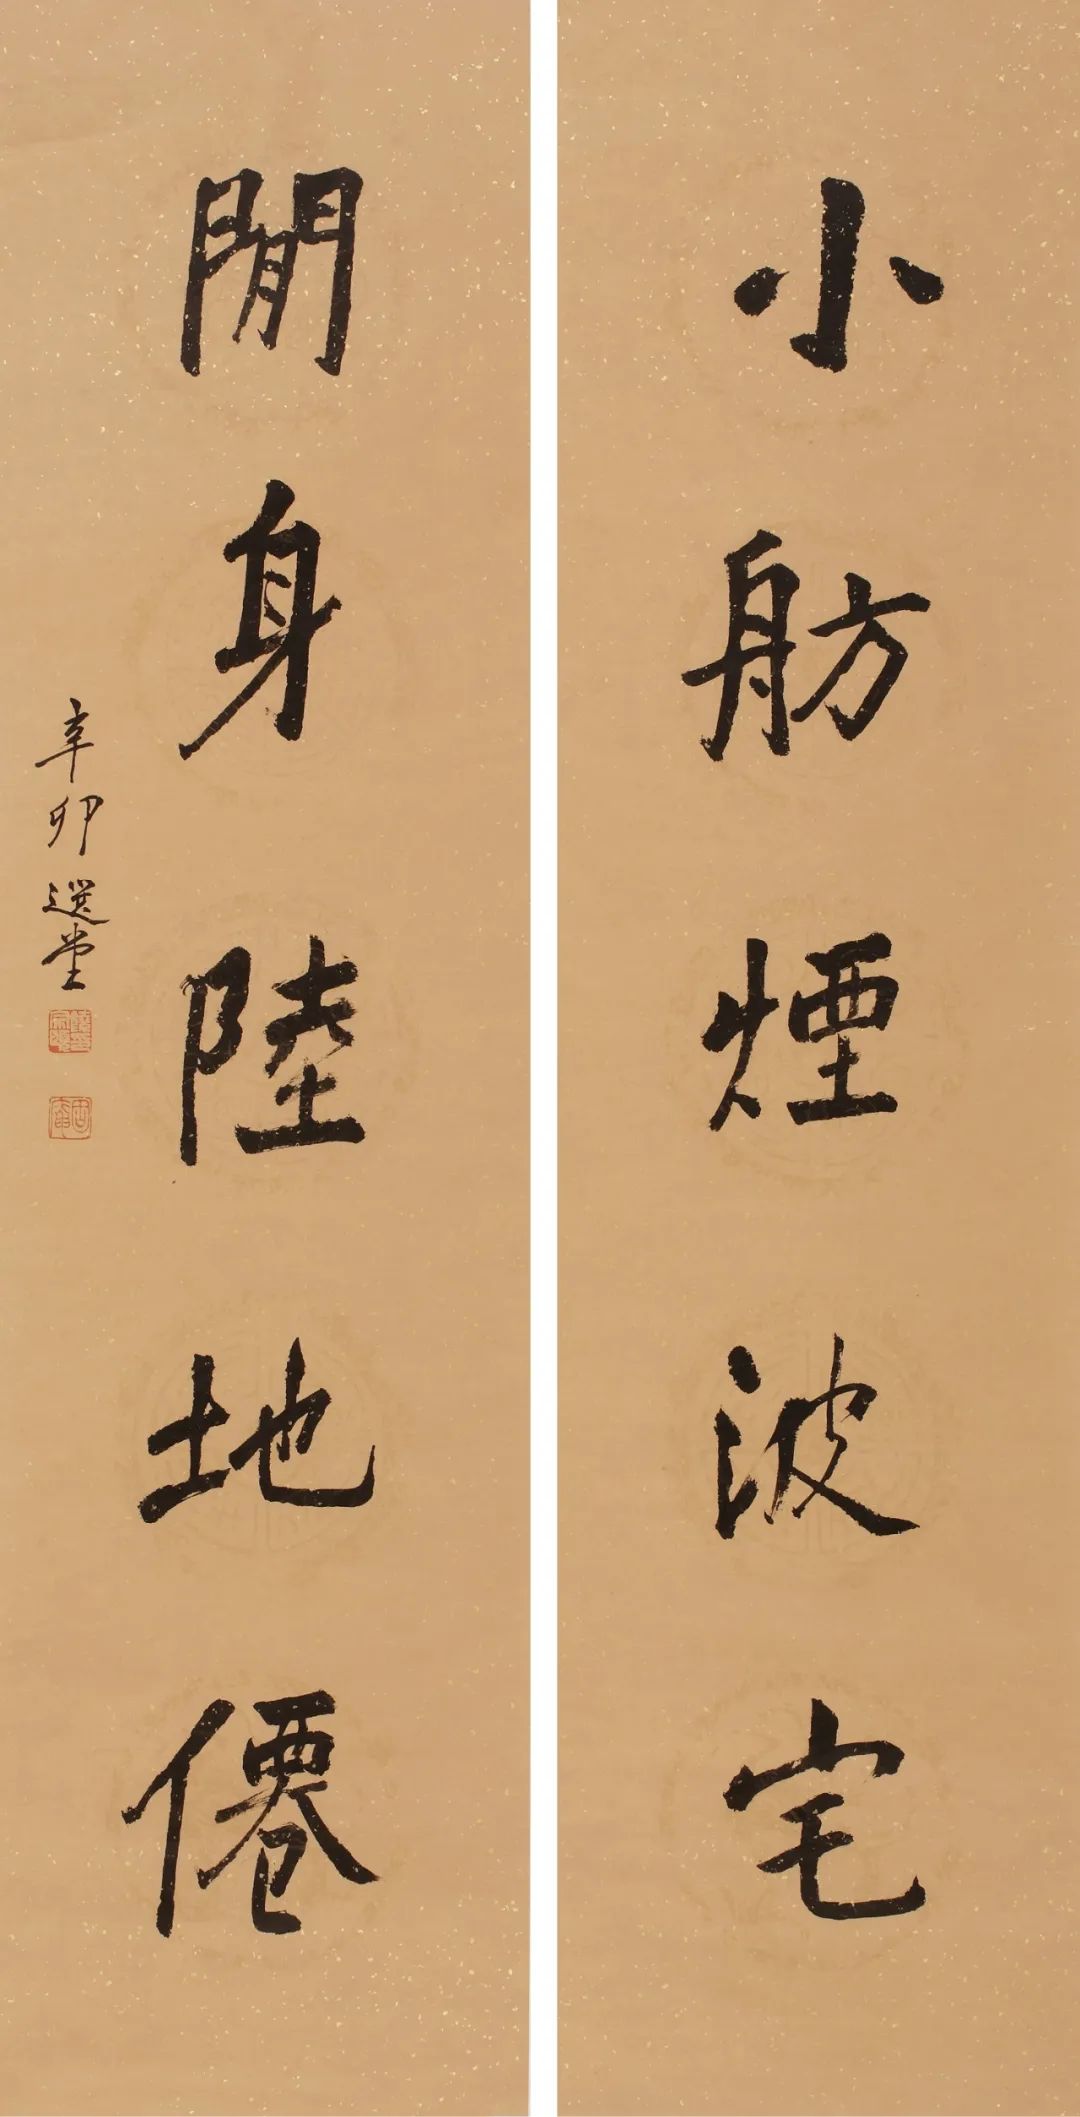 小舫煙波宅
閒身陸地僊
辛卯選堂